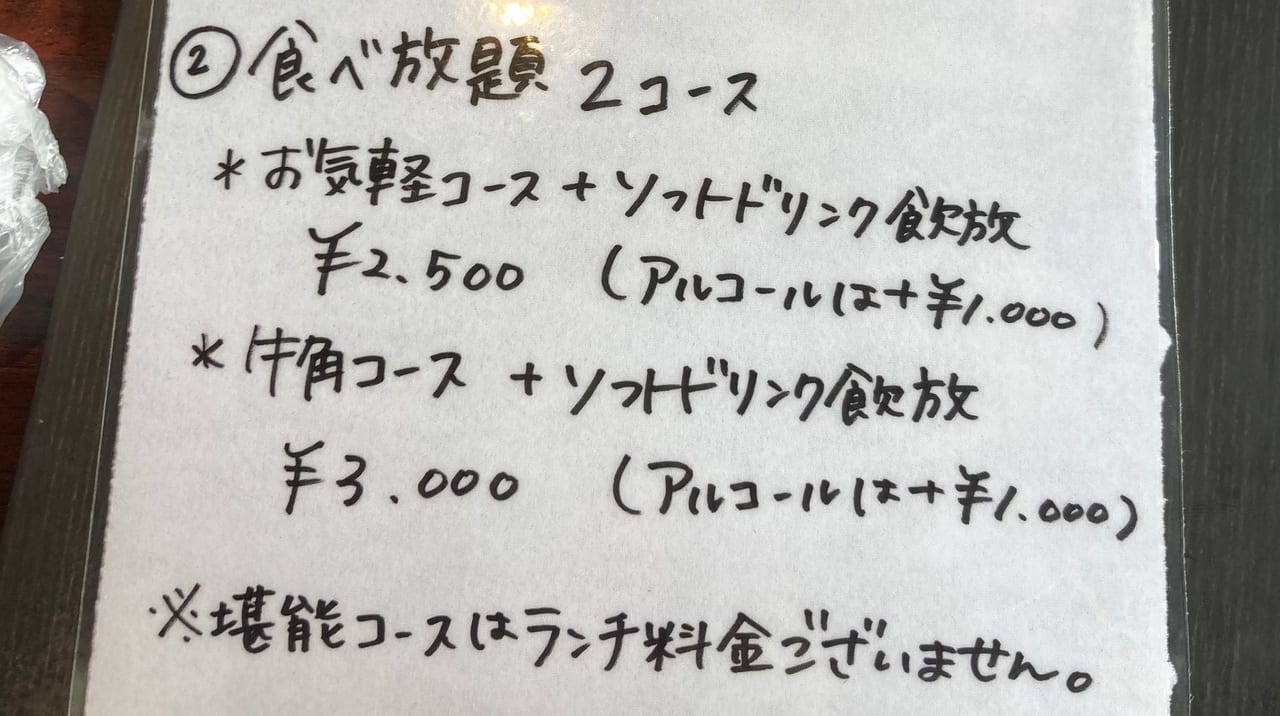 ② 食べ放題 2コース
*お気軽コース + ソフトドリンク飲放
¥2.500 (アルコールは+¥1.000)
*牛角コース + ソフトドリンク飲放
¥3.000 (アルコールは+¥1.000)
※堪能コースはランチ料金ございません。